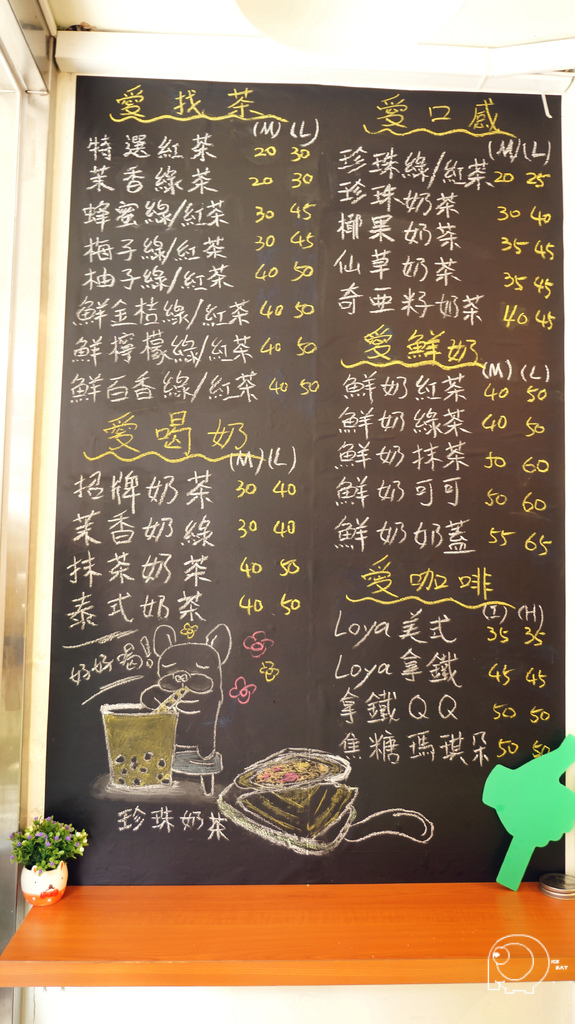 愛找茶
(M) (L)
特選紅茶 20 30
茉香綠茶 20 30
蜂蜜綠/紅茶 30 45
梅子綠/紅茶 30 45
柚子綠/紅茶 40 50
鮮金桔綠/紅茶 40 50
鮮檸檬綠/紅茶 40 50
鮮百香綠/紅茶 40 50
愛喝奶
(M) (L)
招牌奶茶 30 40
茉香奶綠 30 40
抹茶奶茶 40 50
泰式奶茶 40 50
好好喝!
珍珠奶茶
愛口感
(M)/(L)
珍珠綠/紅茶 20 25
珍珠奶茶 30 40
椰果奶茶 35 45
仙草奶茶 35 45
奇亞籽奶茶 40 45
愛鮮奶
(M) (L)
鮮奶紅茶 40 50
鮮奶綠茶 40 50
鮮奶抹茶 50 60
鮮奶可可 50 60
鮮奶奶蓋 55 65
愛咖啡
(I) (H)
Loya美式 35 35
Loya拿鐵 45 45
拿鐵QQ 50 50
焦糖瑪琪朵 50 50